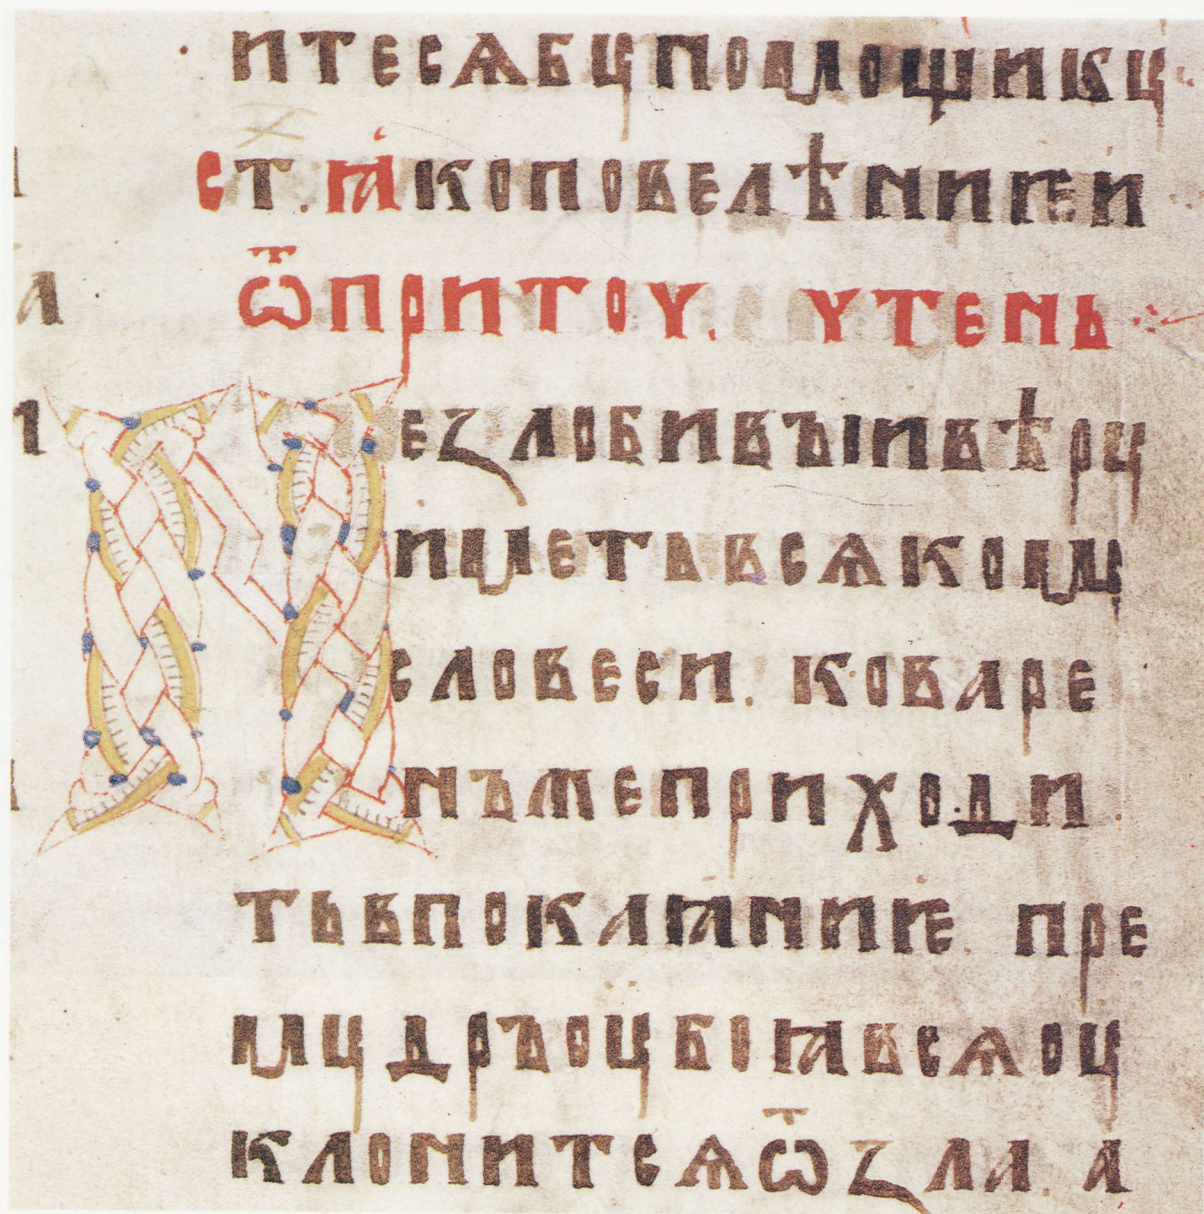 итесѧбꙋпомощикꙋ
ст. ꙗкоповелѣниѥи
ѿприточ. чтень
Незлобивъıивѣрꙋ
иметьвсѧкомꙋ
словеси. коваре
нъжеприходи
тьвпокаꙗниѥ пре
мꙋдръоꙋбоꙗвсѧоꙋ
клонитсѧѿзла. а